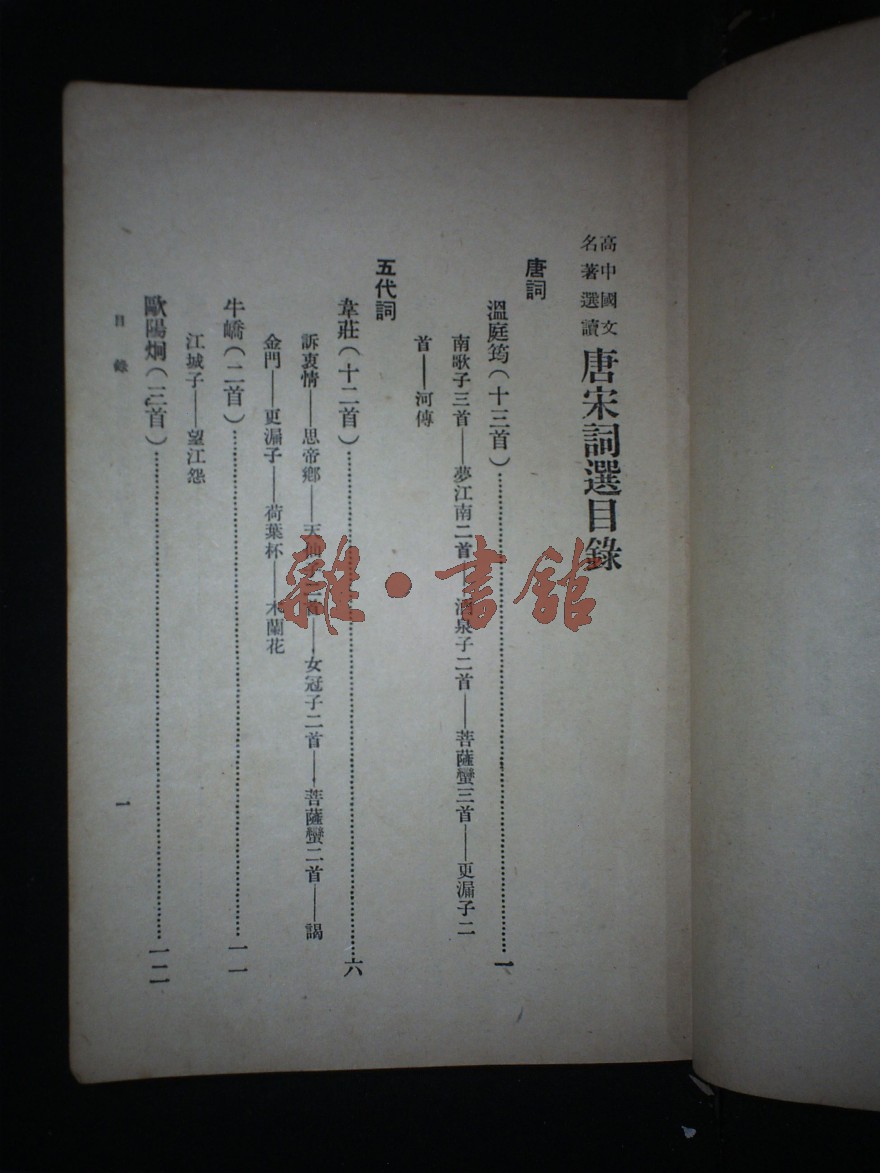 高中國文
名著選讀
唐宋詞選目錄
唐詞
溫庭筠（十三首）…………一
南歌子三首——夢江南二首——酒泉子二首——菩薩蠻三首——更漏子二
首——河傳
五代詞
韋莊（十二首）…………六
訴衷情——思帝鄉——天仙子二首——女冠子二首——菩薩蠻二首——謁
金門——更漏子——荷葉杯——木蘭花
牛嶠（二首）…………一一
江城子——望江怨
歐陽炯（三首）…………一二
目錄
一
雜·書館